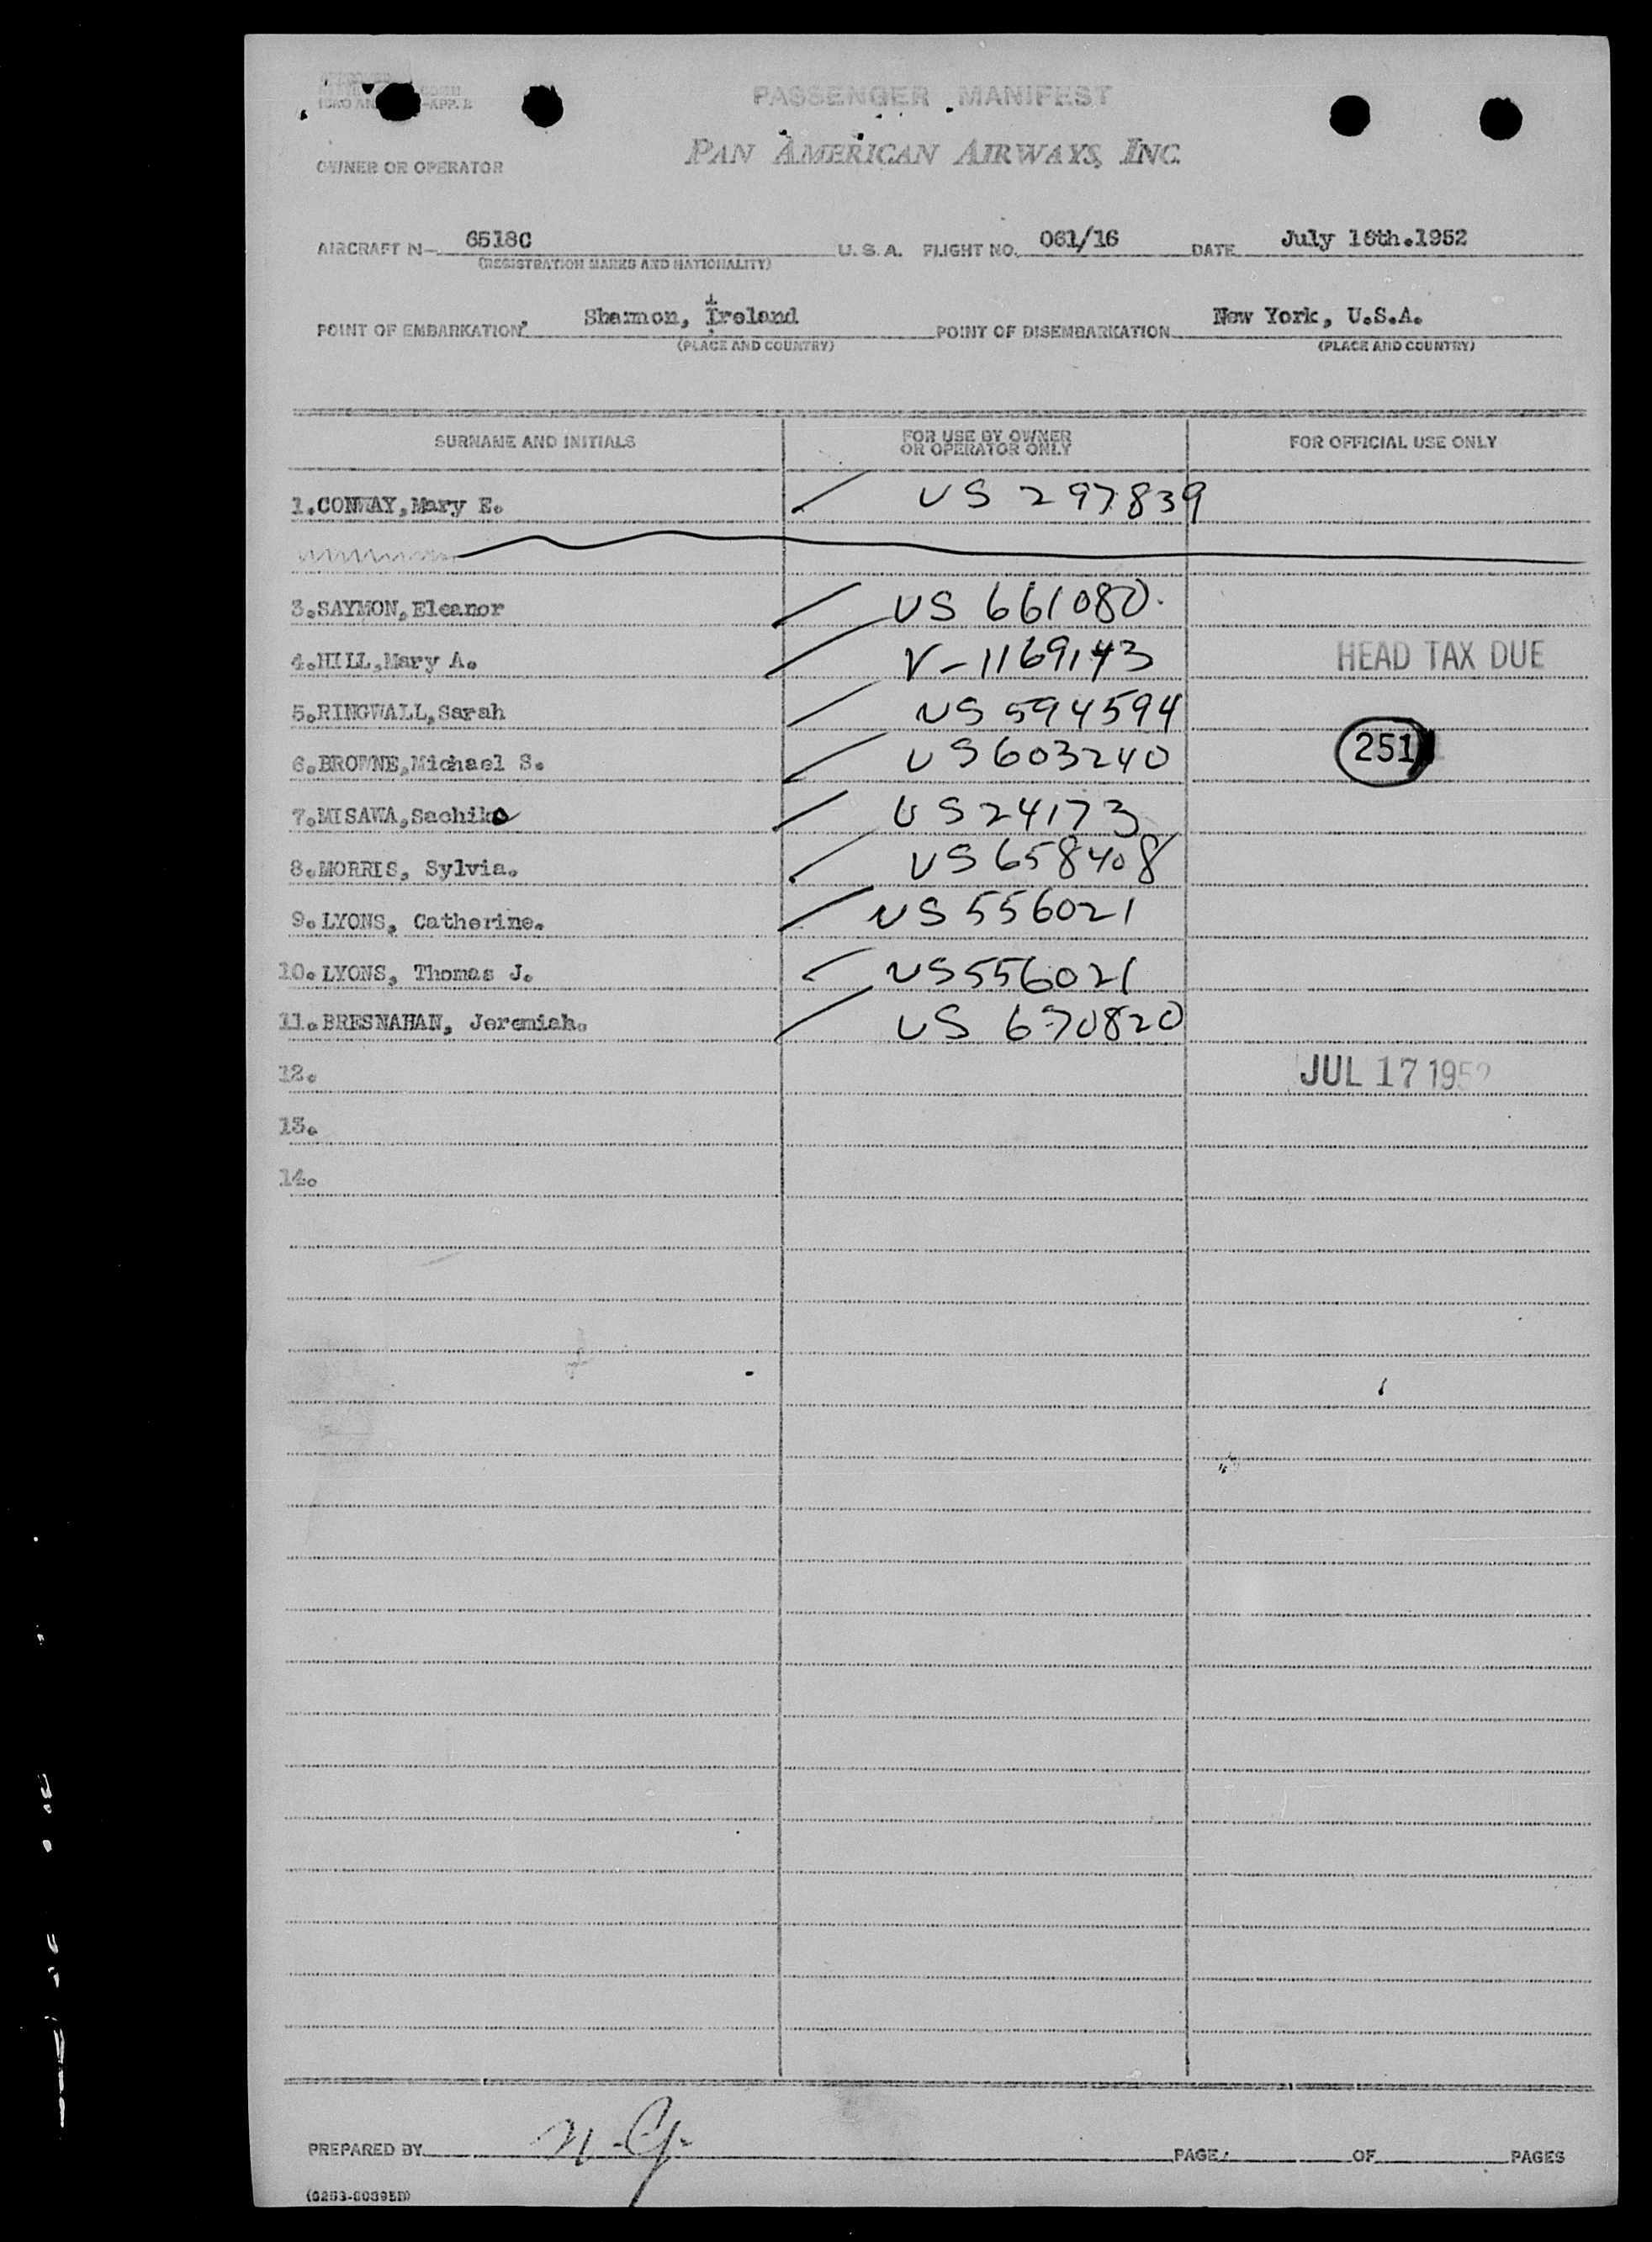 PASSENGER MANIFEST
-APP. 2
PAN AMERICAN AIRWAYS, INC.
OWNER OR OPERATOR
AIRCRAFT N- 6518C U.S.A. FLIGHT NO. 061/16 DATE July 16th.1952
(REGISTRATION MARKS AND NATIONALITY)
POINT OF EMBARKATION Shannon, Ireland POINT OF DISEMBARKATION New York, U.S.A.
(PLACE AND COUNTRY) (PLACE AND COUNTRY)
SURNAME AND INITIALS FOR USE BY OWNER OR OPERATOR ONLY FOR OFFICIAL USE ONLY
1.CONWAY,Mary E. US 297839
3.SAYMON,Eleanor US 661080
4.HILL,Mary A. V-1169143 HEAD TAX DUE
5.RINGWALL,Sarah US 594594
6.BROWNE,Michael S. US 603240 251
7.MISAWA,Sachiko US 24173
8.MORRIS, Sylvia. US 658408
9.LYONS, Catherine. US 556021
10.LYONS, Thomas J. US 556021
11.BRESNAHAN, Jeremiah. US 670820
12. JUL 17 1952
13.
14.
PREPARED BY N.G. PAGE OF PAGES